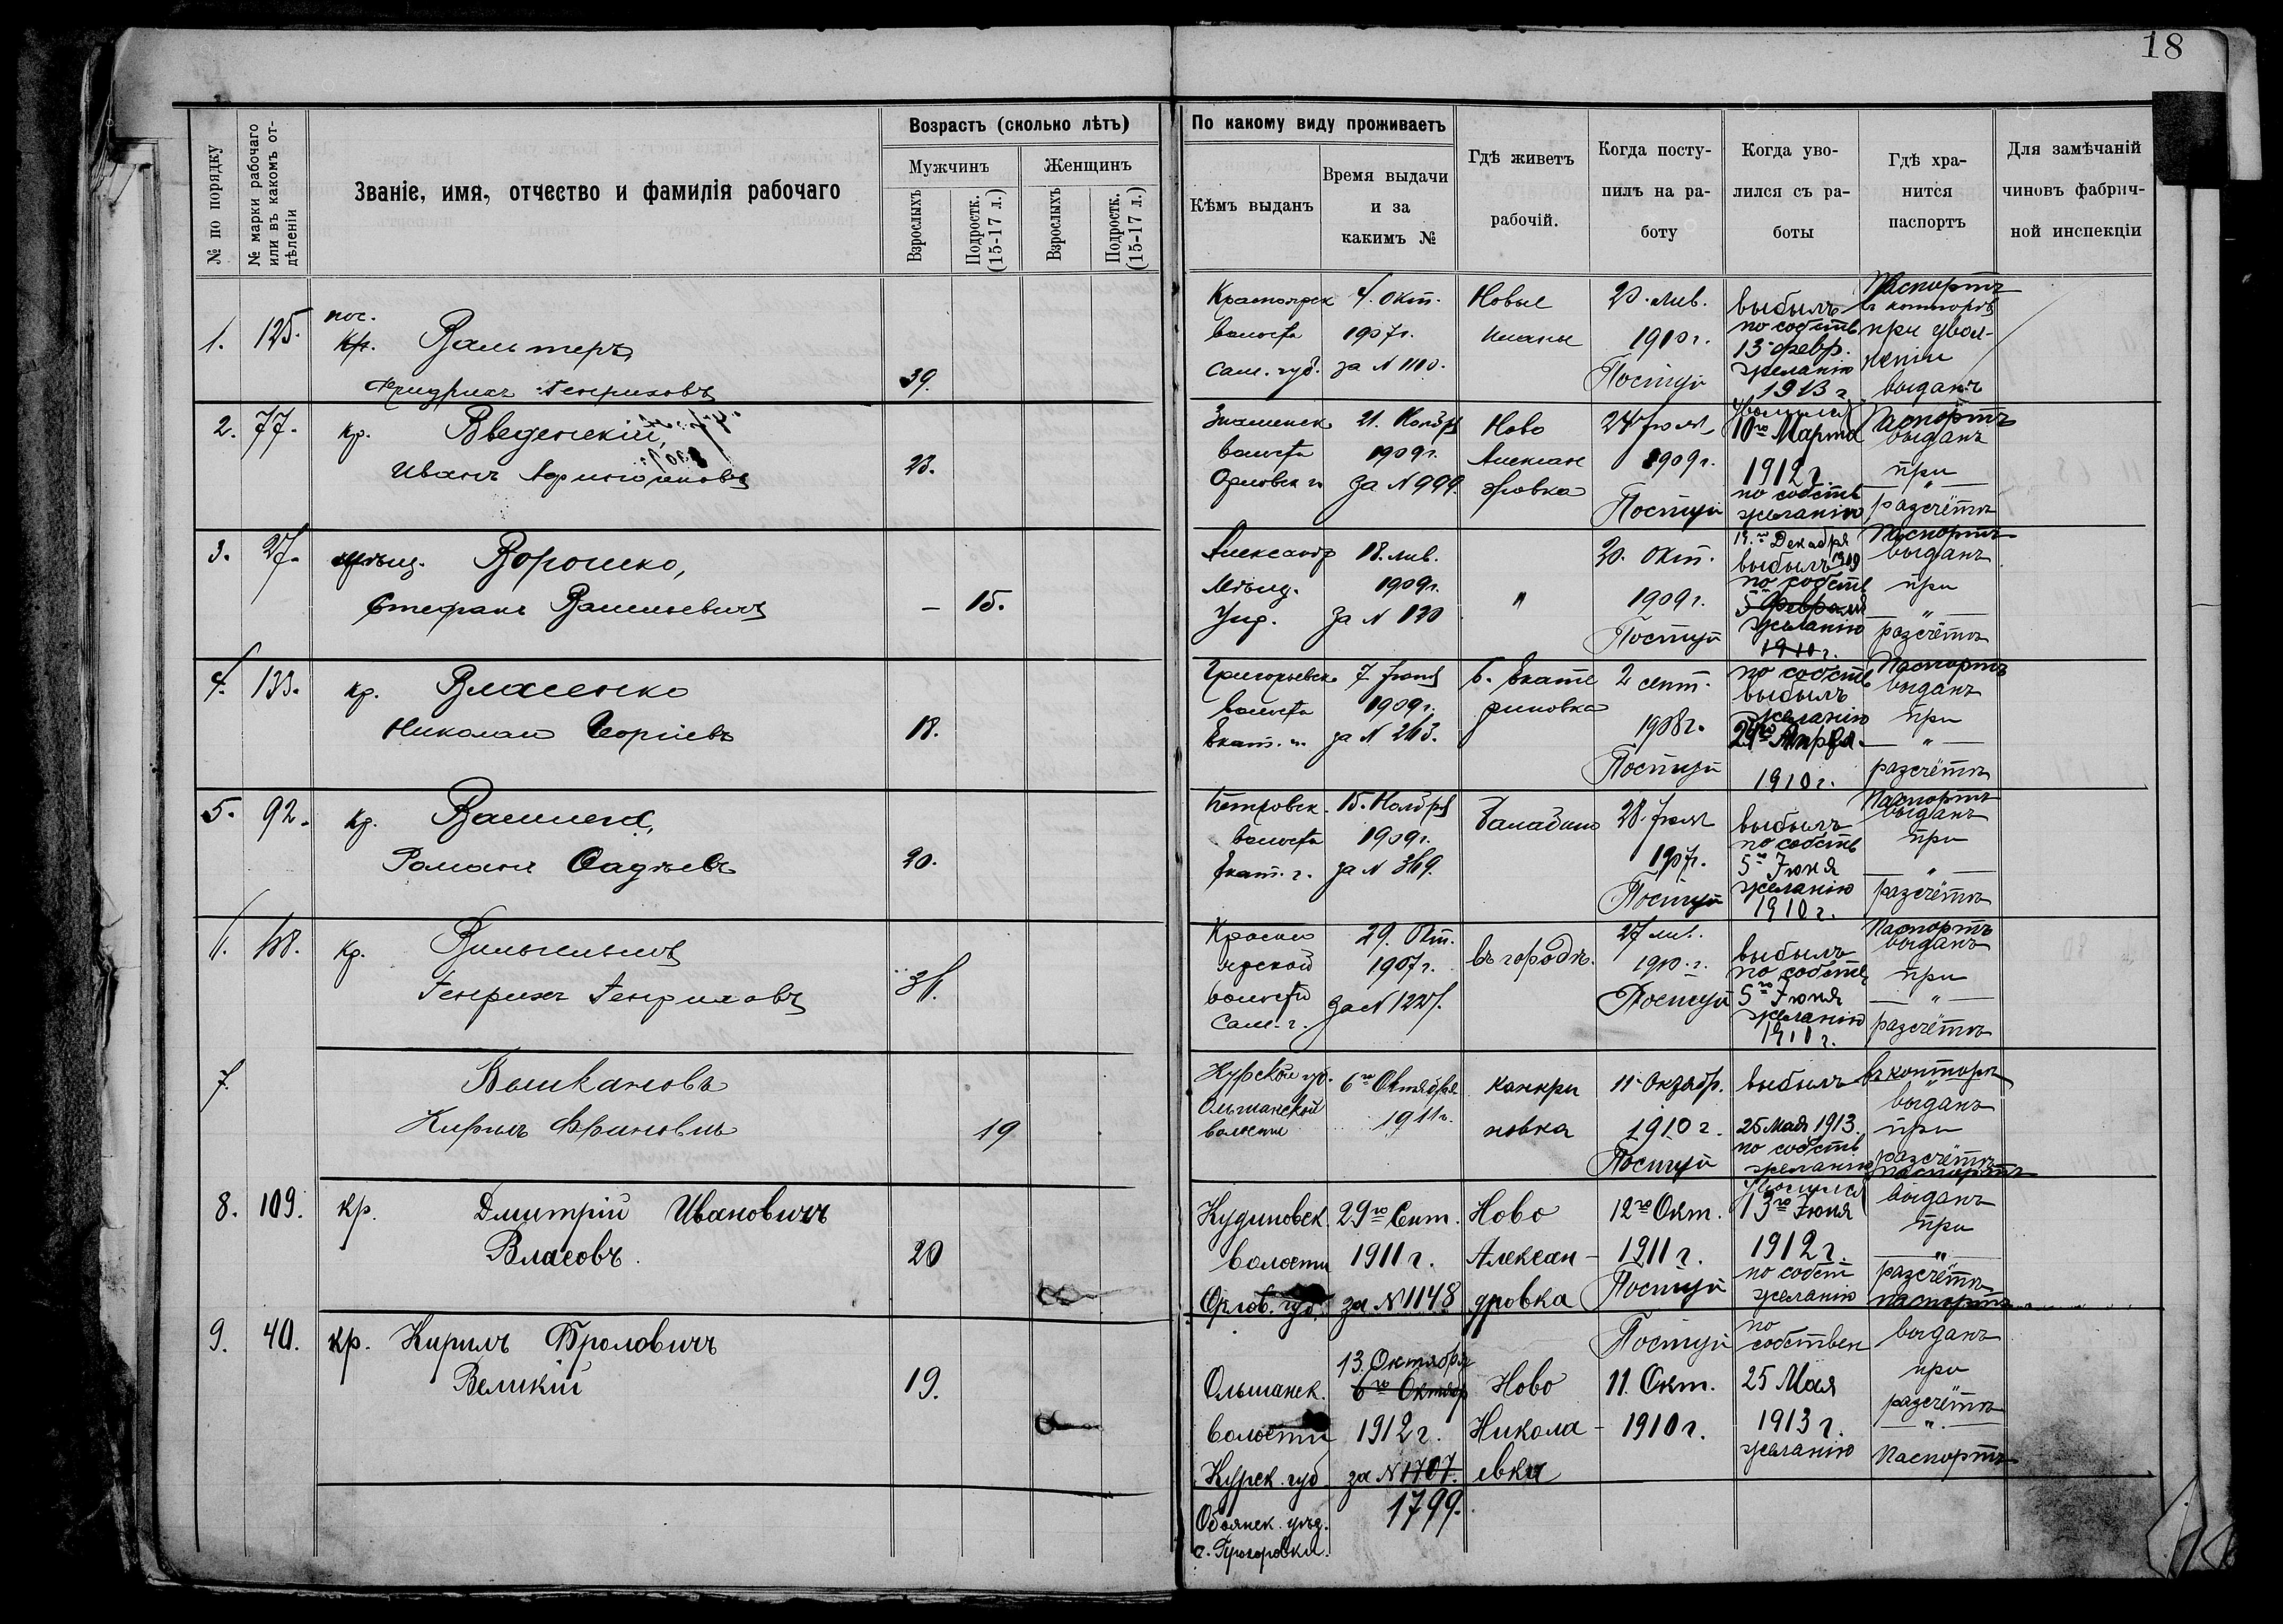 18
№ по порядку
№ марки рабочаго или въ какомъ отдѣленіи
Званіе, имя, отчество и фамилія рабочаго
Возрастъ (сколько лѣтъ)
Мужчинъ
Женщинъ
Взрослыхъ
Подростк. (15-17 л.)
Взрослыхъ
Подростк. (15-17 л.)
По какому виду проживаетъ
Кѣмъ выданъ
Время выдачи
и за
какимъ №
Гдѣ живетъ
рабочій.
Когда посту-
пилъ на ра-
боту
Когда уво-
лился съ ра-
боты
Гдѣ хра-
нится
паспортъ
Для замѣчаній
чиновъ фабрич-
ной инспекціи
1.
125.
пос.
кр.
Вальтеръ
Фридрихъ Генриховъ
39.
Краснояреk
волости
Сам. губ.
4. Окт.
1907г.
за N 1110.
Новые
планы
20. янв.
1910г.
Поступ
выбылъ
по собств
13 февр.
желанію
1913 г
Паспортъ
въ конторѣ
при уволь-
неніи
выданъ
2.
77.
кр.
Введенскій,
Иванъ
23.
Знаменск.
волости
Орловск г.
21. Ноября
1909г.
за N 999.
Ново
Алексан
дровка
24 Іюля
1909г.
Поступ
Уволился
10го Марта
1912 г
по собств
желанію
Паспортъ
выданъ
при
— „ —
разсчётѣ
3.
27.
мѣщ.
Ворошко,
Стефанъ Васильевичъ
—
15.
Александр
Мѣщ.
Упр.
18. янв.
1909г.
за N 120
„
20. Окт.
1909г.
Поступ
19го Декабря
выбылъ 1909
по собств
5 Февраля
желанію
1910 г.
Паспортъ
выданъ
при
— „ —
разсчётѣ
4.
133.
кр.
Власенко
Николай Георгіевъ
18.
Григорьевск.
волости
Екат. г.
7 Іюня
1909г.
за N 263.
Б. Екате
риновка
2 сент.
1908г.
Поступ
по собств
выбылъ
желанію
1910 г.
Паспортъ
выданъ
при
— „ —
разсчётѣ
5.
92.
кр.
Романъ
20.
Петровск.
волости
Екат. г.
15. Ноября
1909г.
за N 369.
28. Іюля
1907г.
Поступ
выбылъ
по собств
5го Іюня
желанію
1910 г.
Паспортъ
выданъ
при
— „ —
разсчётѣ
кр.
Вильгельмъ
Генрихъ Генриховъ
36.
Красно
ярской
волости
Сам. г.
29. Окт.
1907г.
въ городѣ.
27 янв.
1910. г.
Поступ
выбылъ
по собств
5го Іюня
желанію
1910 г.
Паспортъ
выданъ
при
— „ —
разсчётѣ
7.
19
Курской губ.
Ольшанской
волости
6го Октября
1911г.
канкри
новка
11 Октябр.
1910 г.
Поступ
выбылъ
25 Мая 1913.
по собств
желанію
въ конторѣ
„
выданъ
при
разсчётѣ
8.
109.
кр.
Дмитрій Ивановичъ
Власовъ.
20
Кудиновск.
волости
Орлов. губ.
29го Сент.
1911 г.
за N 1148
Ново
Алексан-
дровка
12го Окт.
1911 г.
Поступ
Уволился
13го Іюня
1912 г.
по собст
желанію
Паспортъ
выданъ
при
— „ —
разсчётѣ
9.
40.
кр. Кирилъ Фроловичъ
Великій
19.
Ольшанск.
волости
Курск. губ
Обоянск. уѣзд.
с. Прохоровки.
13. Октября
6го Октябр
1912 г.
за N 1707.
1799.
Ново
Никола-
евка
Поступ
11. Окт.
1910 г.
по
собствен
25 Мая
1913 г.
желанію
паспортъ
выданъ
при
разсчётѣ
— „ —
Паспортъ